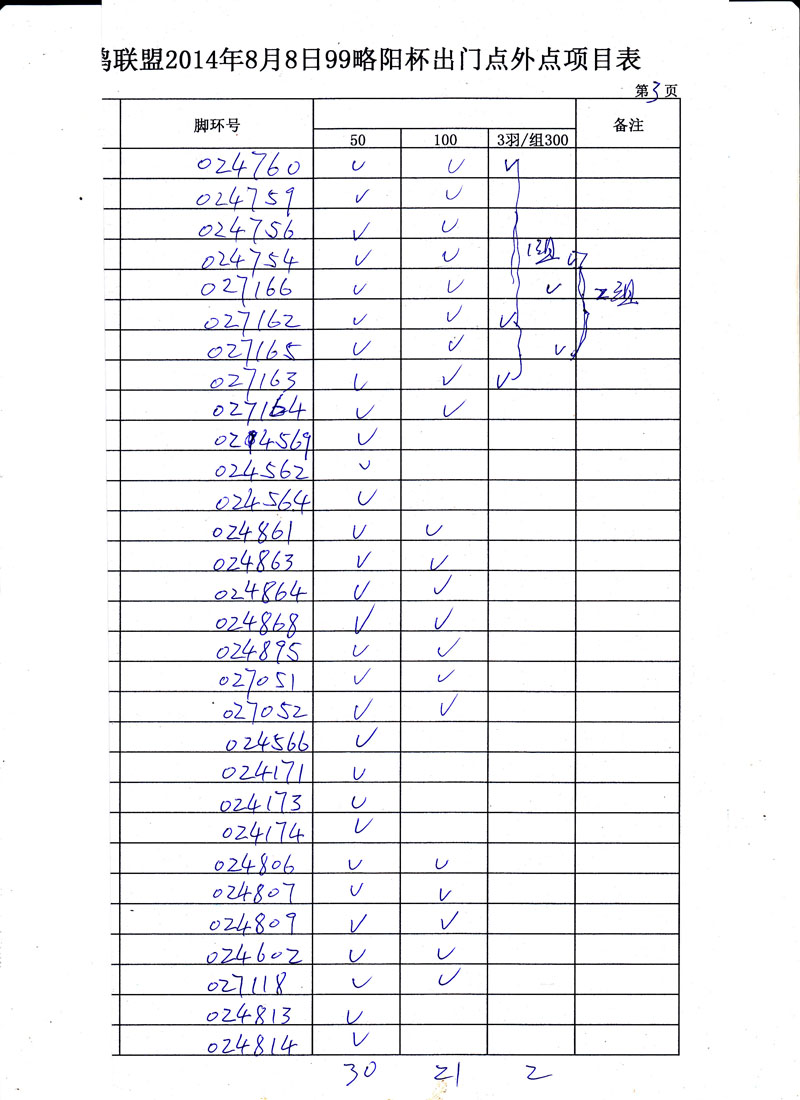 鸽联盟2014年8月8日99略阳杯出门点外点项目表
第3页
脚环号 备注
50 100 3羽/组300
024760 ✓ ✓ ✓
024759 ✓ ✓
024756 ✓ ✓
024754 ✓ ✓ 1组 ✓
027166 ✓ ✓ ✓ 2组
027162 ✓ ✓ ✓
027165 ✓ ✓ ✓
027163 ✓ ✓ ✓
027164 ✓ ✓
024569 ✓
024562 ✓
024564 ✓
024861 ✓ ✓
024863 ✓ ✓
024864 ✓ ✓
024868 ✓ ✓
024895 ✓ ✓
027051 ✓ ✓
027052 ✓ ✓
024566 ✓
024171 ✓
024173 ✓
024174 ✓
024806 ✓ ✓
024807 ✓ ✓
024809 ✓ ✓
024602 ✓ ✓
027118 ✓ ✓
024813 ✓
024814 ✓
30 21 2